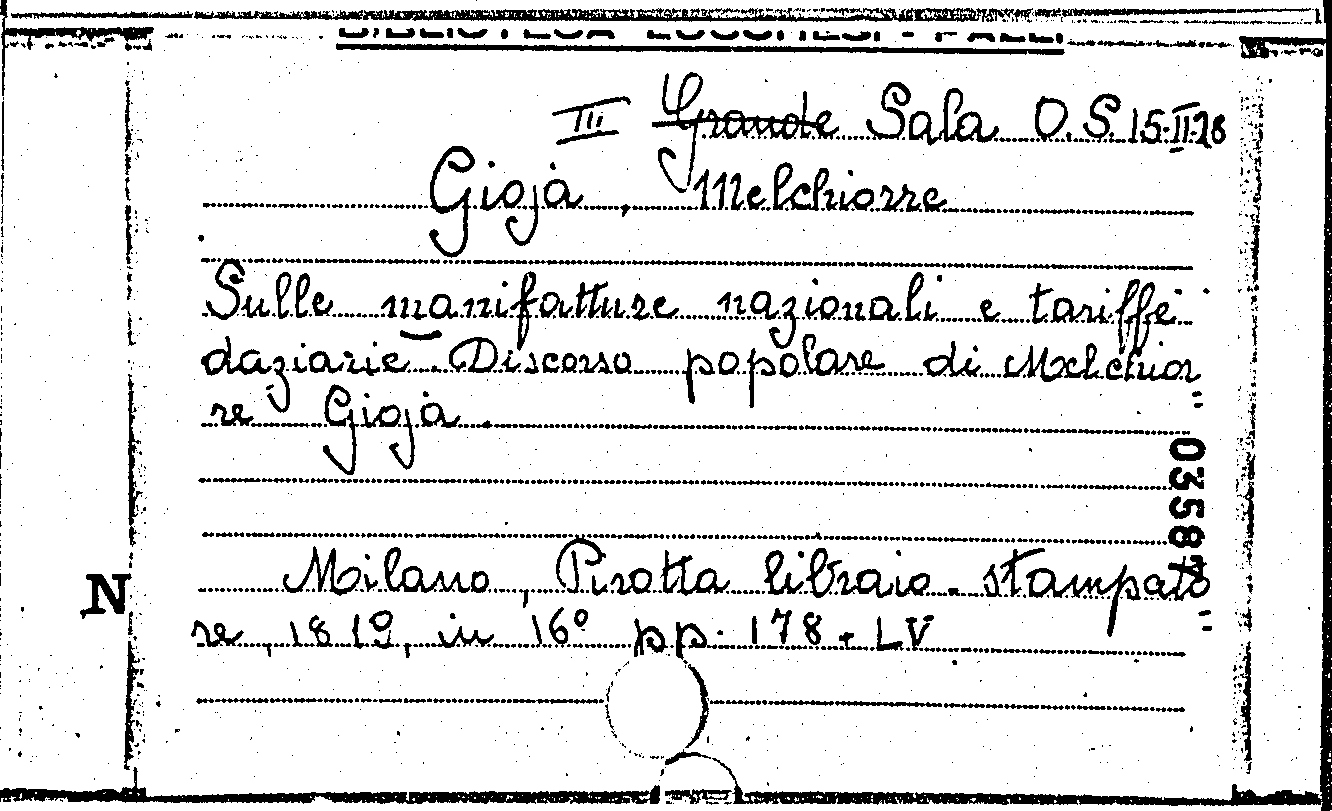 BIBLIOTECA LUCCHESI - PALLI
III Grande Sala O.S. 15.II.28
Gioja, Melchiorre
Sulle manifatture nazionali e tariffe
daziarie. Discorso popolare di Melchior
re Gioja.
03587
Milano, Pirotta libraio-stampato
N
re, 1819, in 16° pp. 178+LV